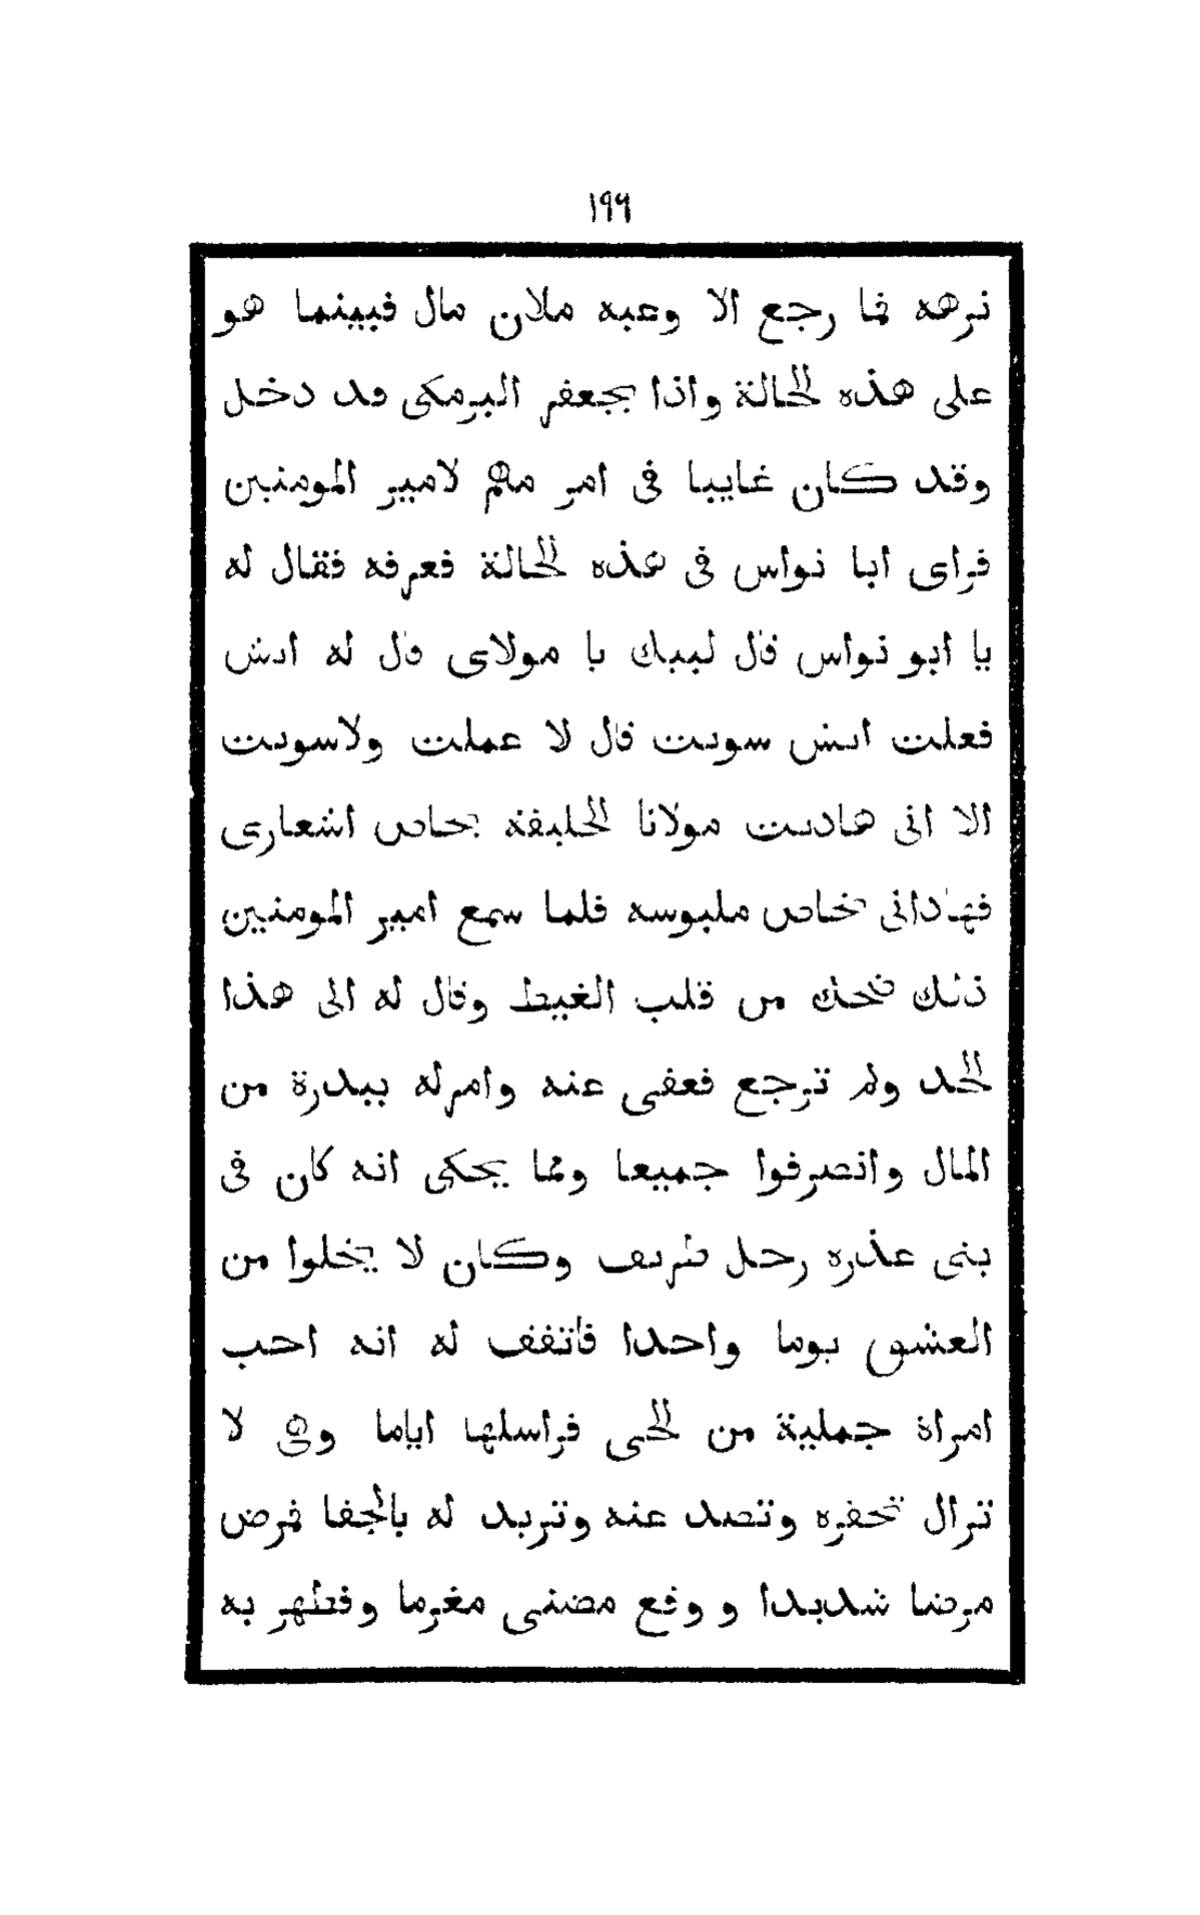 ١٩٦
نرهه فما رجع الا وعبه ملان مال فبينما هو
على هذه الحالة واذا بجعفر البرمكى قد دخل
وقد كان غايبا فى امر مهم لامير المومنين
فراى ابا نواس فى هذه الحالة فعرفه فقال له
يا ابو نواس قال لبيك يا مولاى قال له ايش
فعلت ايش سويت قال لا عملت ولاسويت
الا انى هاديت مولانا الخليفة بخاص اشعارى
فهادانى بخاص ملبوسه فلما سمع امير المومنين
ذلك ضحك من قلب الغيط وقال له الى هذا
الحد ولم ترجع فعفى عنه وامرله ببدرة من
المال وانصرفوا جميعا ومما يحكى انه كان فى
بنى عذره رجل ظريف وكان لا يخلوا من
العشق يوما واحدا فاتفف له انه احب
امراة جملية من الحى فراسلها اياما وهى لا
ترال تحفره وتصد عنه وتريد له بالجفا فمرض
مرضا شديدا و وقع مضنى مغرما وفظهر به